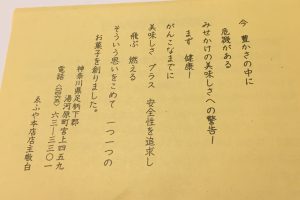 今 豊かさの中に
危機がある
みせかけの美味しさへの警告ー
まず 健康ー
がんこなまでに
美味しさ プラス 安全性を追求し
飛ぶ 燃える
そういう思いをこめて 一つ一つの
お菓子を創りました。
神奈川県足柄下郡
湯河原町宮上四五九
電話 六三ー三三〇一
ゑふや本店店主敬白